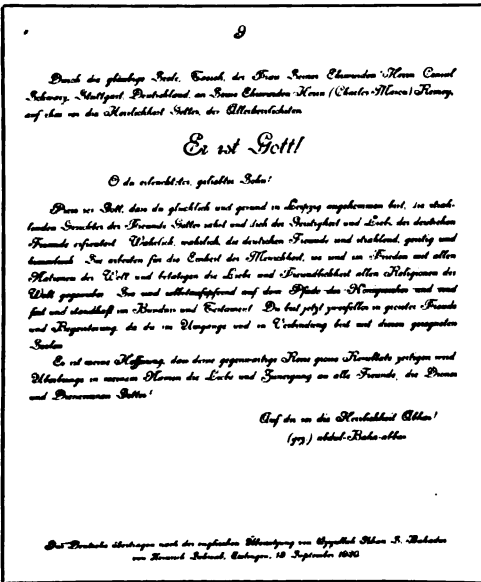 9
Durch die gläubige Seele, Tarsah, der Frau Seiner Ehrwürden Herrn Consul
Schwarz, Stuttgart, Deutschland, an Seine Ehrwürden Herrn (Charles Mason) Remey,
auf ihm sei die Herrlichkeit Gottes, des Allerherrlichsten
Er ist Gott!
O du erleuchteter, geliebter Sohn!
Preis sei Gott, dass du glücklich und gesund in Leipzig angekommen bist, die strah-
lenden Gesichter der Freunde Gottes sahst und dich der Geistigkeit und Liebe der deutschen
Freunde erfreutest. Wahrlich, wahrlich, die deutschen Freunde sind strahlend, geistig und
himmlisch. Sie arbeiten für die Einheit der Menschheit, sie sind im Frieden mit allen
Nationen der Welt und betätigen die Liebe und Freundlichkeit allen Religionen der
Welt gegenüber. Sie sind selbstaufopfernd auf dem Pfade des Königreiches und sind
fest und standhaft im Bündnis und Testament. Du bist jetzt zweifellos in grosser Freude
und Begeisterung, da du im Umgange und in Verbindung bist mit diesen gesegneten
Seelen.
Es ist meine Hoffnung, dass deine gegenwärtige Reise grosse Resultate zeitigen wird.
Überbringe in meinem Namen die Liebe und Zuneigung an alle Freunde, die Diener
und Dienerinnen Gottes!
Auf dir sei die Herrlichkeit Abhas!
(gez.) abdul-Baha-abbas
Ins Deutsche übertragen nach der englischen Übersetzung von
von Heinrich Schwab, Esslingen, 18 September 1920